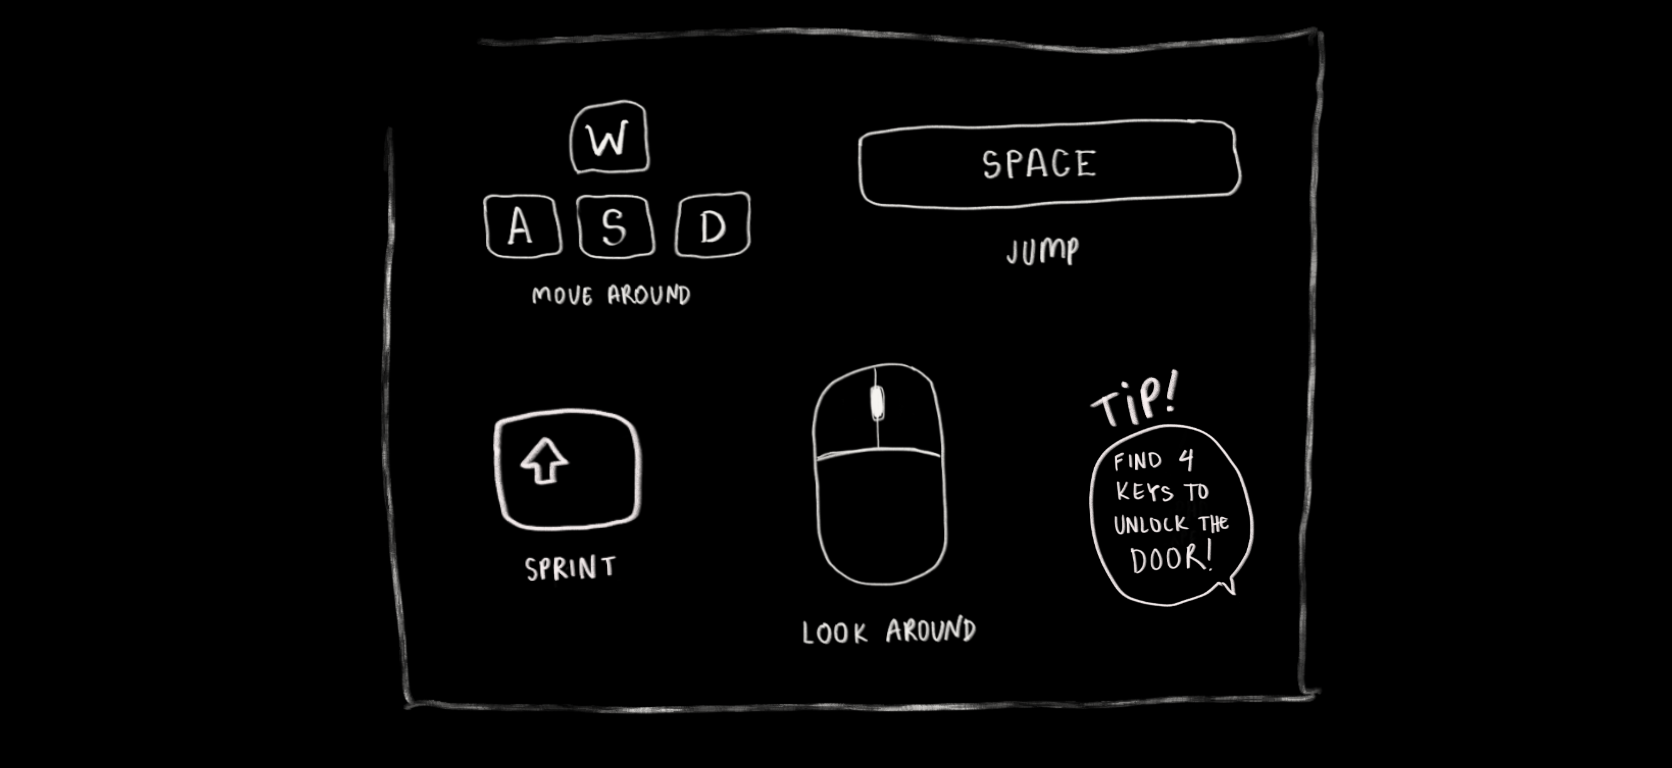 W
A S D
MOVE AROUND
SPACE
JUMP
SPRINT
LOOK AROUND
TiP!
FIND 4
KEYS TO
UNLOCK THE
DOOR!